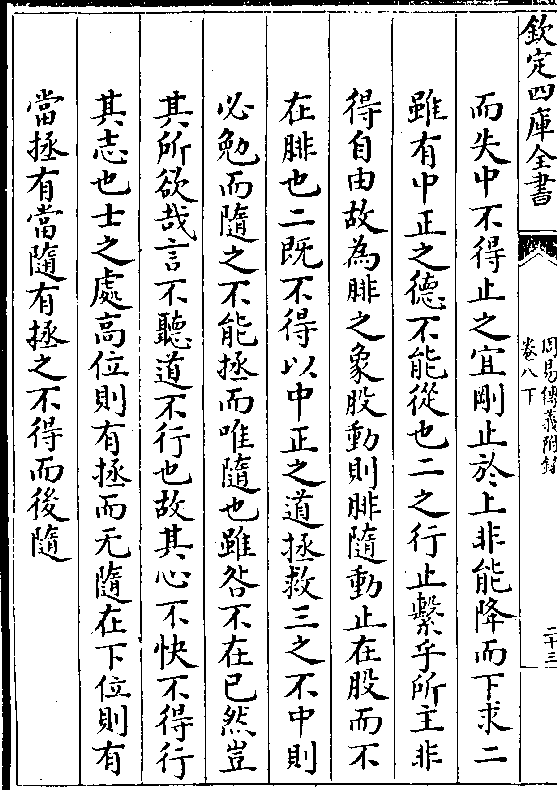 欽定四庫全書
周易傳義附錄
卷八下
二十三
而失中不得止之宜剛止於上非能降而下求二
雖有中正之德不能從也二之行止繫乎所主非
得自由故為腓之象股動則腓隨動止在股而不
在腓也二既不得以中正之道拯救三之不中則
必勉而隨之不能拯而唯隨也雖咎不在已然豈
其所欲哉言不聽道不行也故其心不快不得行
其志也士之處高位則有拯而无隨在下位則有
當拯有當隨有拯之不得而後隨